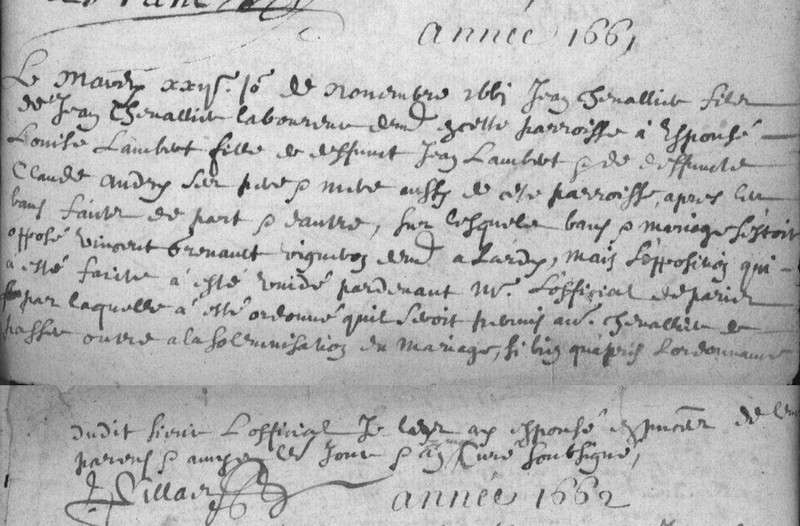 année 1661
Le Mardy xxijᵉ. Joʳ de Novembre 1661 Jean Chevallier filz
de Jean Chevallier laboureur demᵗ en cette parroisse à Espousé
Louise Lambert fille de deffunct Jean Lambert & de deffuncte
Claude Andry ses pere & mere aussy de cete parroisse, apres les
bans faictz de part & dautre, sur lesquels bans & mariage s'estoit
opposé vincent Grenault vigneron demᵗ a Lardy, mais l'opposition qui
a esté faicte à esté vuidé pardevant Mʳ. L'official de paris
par laquelle à esté ordonné quil seroit permis auᵈ. Chevallier de
passer outre a la solemnisation du Mariage, si bien quapres Lordonnance
dudit sieur L'official Je les ay espousé en pñce de leurs
parens & amys les Jour & an Curé soubsigné,
année 1662